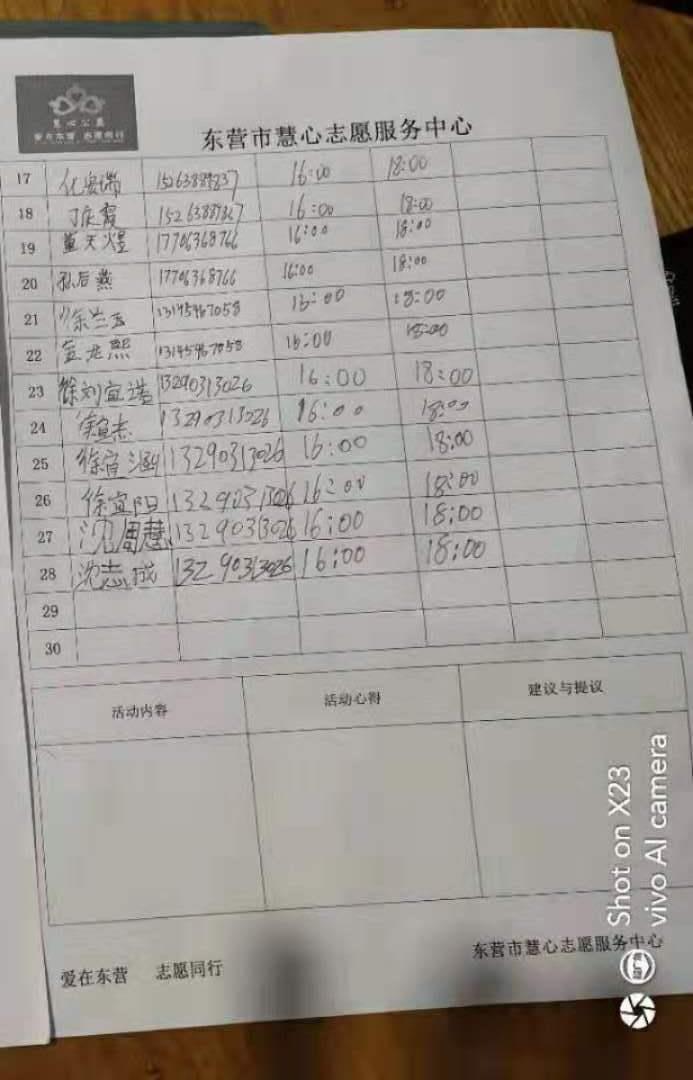 慧心公益
爱在东营 志愿同行
东营市慧心志愿服务中心
17 15263889837 16:00 18:00
18 丁庆霞 15263889827 16:00 18:00
19 董天煜 17706368766 16:00 18:00
20 孙后燕 17706368766 16:00 18:00
21 徐兰玉 13145967058 16:00 18:00
22 龙熙 13145967058 16:00 18:00
23 徐刘宜诺 13290313026 16:00 18:00
24 徐宜志 13290313026 16:00 18:00
25 徐宜涵 13290313026 16:00 18:00
26 徐宜阳 13290313026 16:00 18:00
27 沈周慧 13290313026 16:00 18:00
28 沈志成 13290313026 16:00 18:00
29
30
活动内容 活动心得 建议与提议
爱在东营 志愿同行 东营市慧心志愿服务中心
Shot on X23
vivo AI camera